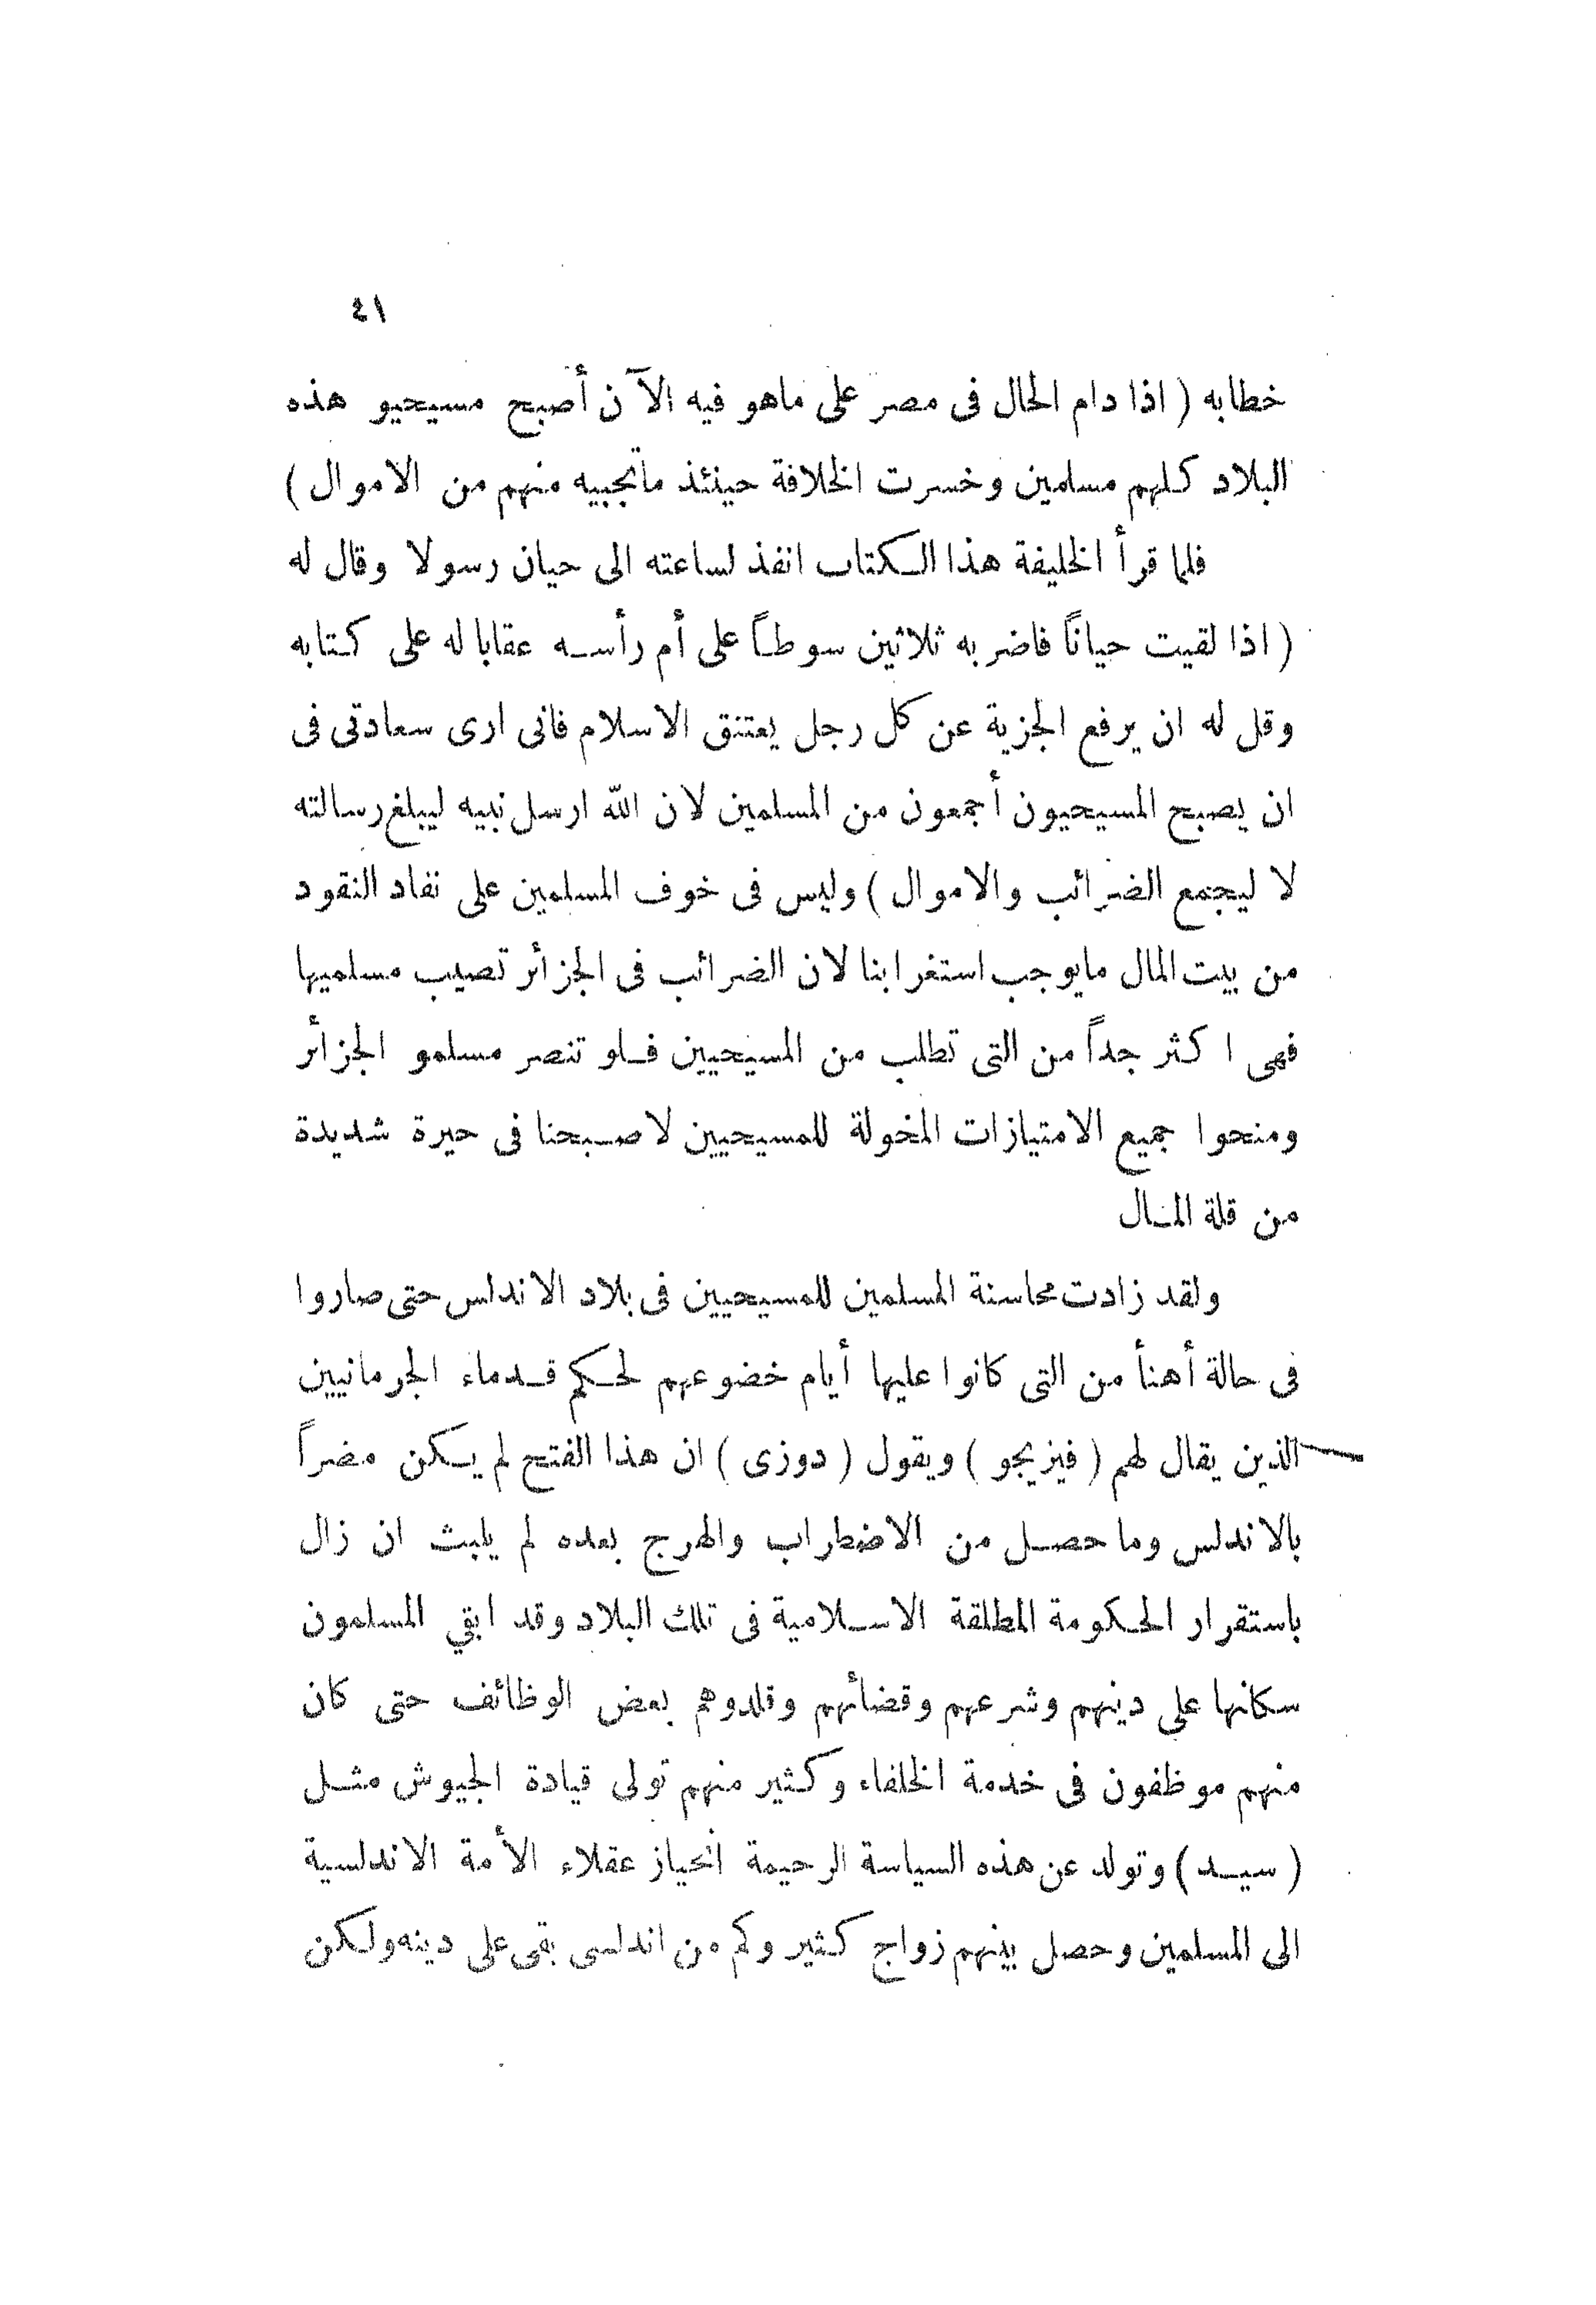 ٤١
خطابه ( اذا دام الحال فى مصر على ماهو فيه الآن أصبح مسيحيو هذه
البلاد كلهم مسلمين وخسرت الخلافة حينئذ ماتجبيه منهم من الاموال )
فلما قرأ الخليفة هذا الكتاب انفذ لساعته الى حيان رسولا وقال له
( اذا لقيت حياناً فاضربه ثلاثين سوطاً على أم رأسه عقابا له على كتابه
وقل له ان يرفع الجزية عن كل رجل يعتنق الاسلام فانى ارى سعادتى فى
ان يصبح المسيحيون أجمعون من المسلمين لان الله ارسل نبيه ليبلغ رسالته
لا ليجمع الضرائب والاموال ) وليس فى خوف المسلمين على نفاد النقود
من بيت المال مايوجب استغرابنا لان الضرائب فى الجزائر تصيب مسلميها
فهى اكثر جداً من التى تطلب من المسيحيين فلو تنصر مسلمو الجزائر
ومنحوا جميع الامتيازات المخولة للمسيحيين لاصبحنا فى حيرة شديدة
من قلة المال
ولقد زادت محاسنة المسلمين للمسيحيين فى بلاد الاندلس حتى صاروا
فى حالة أهنأ من التى كانوا عليها أيام خضوعهم لحكم قدماء الجرمانيين
الذين يقال لهم ( فيزيجو ) ويقول ( دوزى ) ان هذا الفتح لم يكن مضراً
بالاندلس وما حصل من الاضطراب والهرج بعده لم يلبث ان زال
باستقرار الحكومة المطلقة الاسلامية فى تلك البلاد وقد ابقي المسلمون
سكانها على دينهم وشرعهم وقضائهم وقلدوهم بعض الوظائف حتى كان
منهم موظفون فى خدمة الخلفاء وكثير منهم تولى قيادة الجيوش مثل
( سيد ) وتولد عن هذه السياسة الرحيمة انحياز عقلاء الأمة الاندلسية
الى المسلمين وحصل بينهم زواج كثير وكم من اندلسى بقى على دينه ولكن